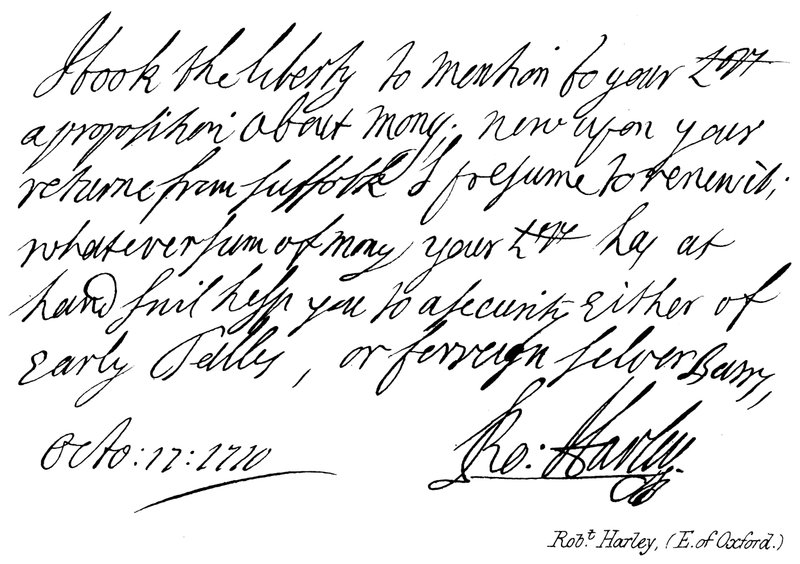 I took the liberty to mention to your Lopp
a proposition about mony. now upon your
returne from suffolk I presume to renew it;
whatever sum of mony your Lopp has at
hand I wil help you to a security Either of
Early Tallys, or forreign silver Barrs,
Octo: 17: 1710
Ro: Harley
Robt. Harley, (E. of Oxford.)